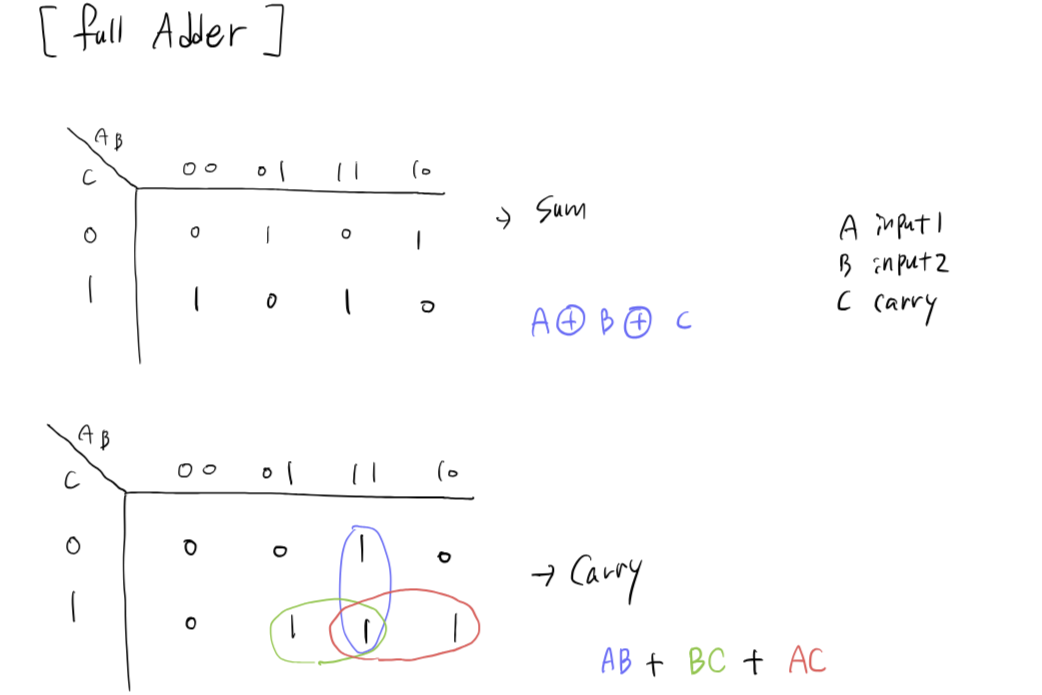 [ full Adder ]
AB
C
00 01 11 10
0 0 1 0 1
1 1 0 1 0
→ Sum
A ⊕ B ⊕ C
A input1
B input2
C carry
AB
C
00 01 11 10
0 0 0 1 0
1 0 1 1 1
→ Carry
AB + BC + AC